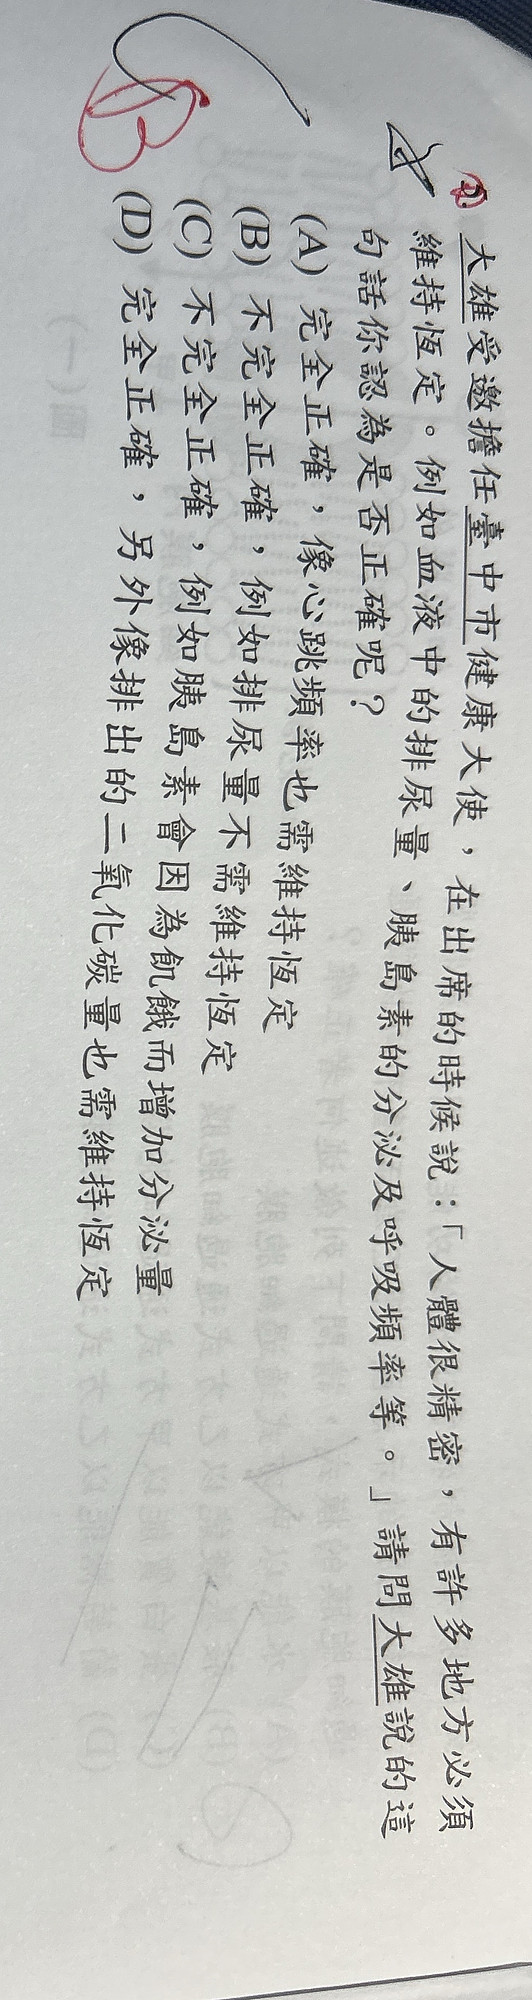 2. 大雄受邀擔任臺中市健康大使，在出席的時候說：「人體很精密，有許多地方必須
維持恆定。例如血液中的排尿量、胰島素的分泌及呼吸頻率等。」請問大雄說的這
句話你認為是否正確呢？
(A) 完全正確，像心跳頻率也需維持恆定
(B) 不完全正確，例如排尿量不需維持恆定
(C) 不完全正確，例如胰島素會因為飢餓而增加分泌量
(D) 完全正確，另外像排出的二氧化碳量也需維持恆定
B